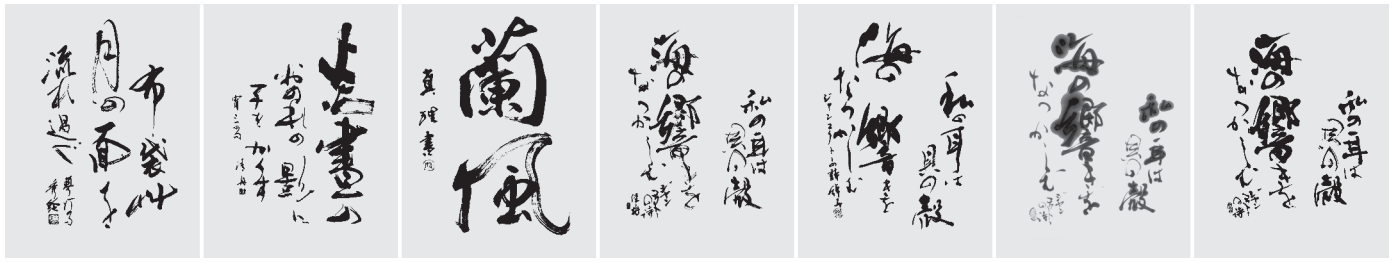 布袋艸
月の面を
流れ過ぐ
炎晝の
おのれの影に
子をかくす
蘭風
真理書
私の耳は
貝の殻
海の響きを
なつかしむ
私の耳は
貝の殻
海の響きを
なつかしむ
私の耳は
貝の殻
海の響きを
なつかしむ
私の耳は
貝の殻
海の響きを
なつかしむ